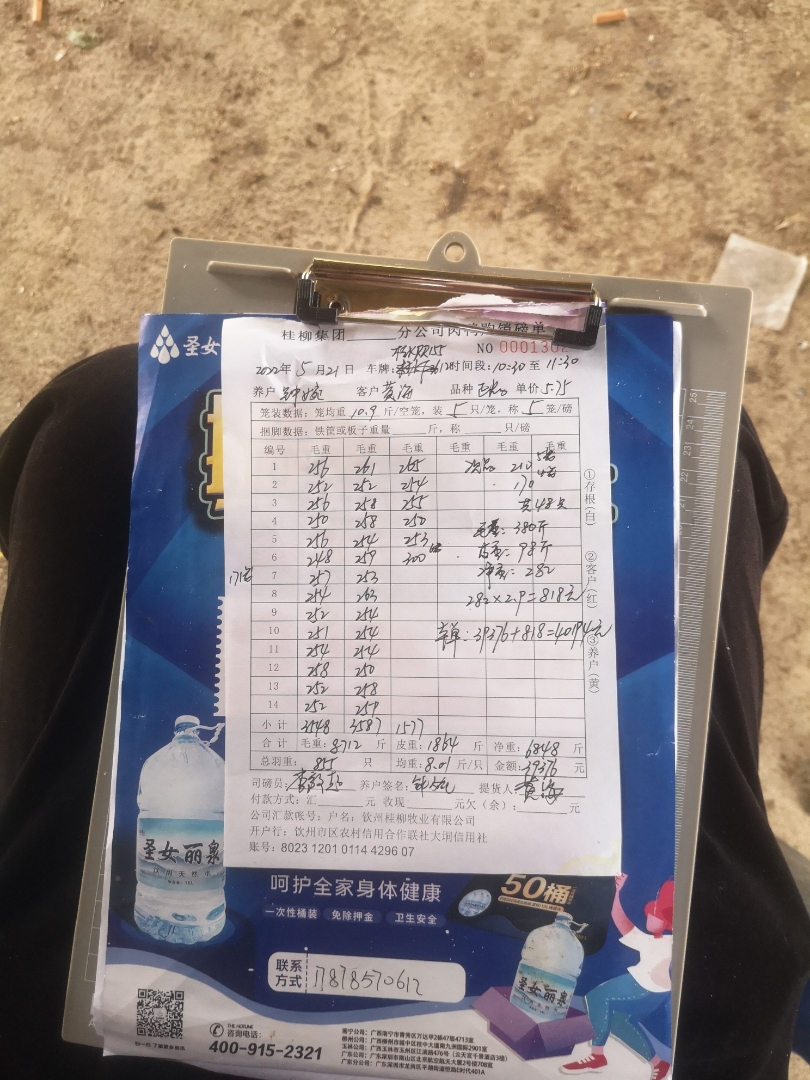 圣女
桂柳集团 分公司肉鸭购销磅单
NO 000130
2022年 5月21日 车牌: 时间段:10:30 至 11:30
养户 客户 黄海 品种 单价 5.75
笼装数据:笼均重 10.9 斤/空笼,装 5 只/笼,称 5 笼/磅
捆脚数据:铁筐或板子重量 斤,称 只/磅
编号 毛重 毛重 毛重 毛重 毛重 毛重
1 256 261 265 次品 210
2 252 252 254 170
3 256 258 255 共48只
4 250 258 250 毛重:380斤
5 256 254 253 皮重:98斤
6 248 259 300 净重:282
7 257 253
8 254 263 282×2.9=818元
9 252 254
10 251 254 车单:39376+818=40194元
11 254 254
12 258 250
13 252 258
14 252 259
小计 3548 3587 1577
合计 毛重:8712 斤 皮重:1864 斤 净重:6848 斤
总羽重: 855 只 均重:8.01 斤/只 金额:39376 元
司磅员: 养户签名: 提货人: 黄海
付款方式:汇 元 收现 元欠(余): 元
公司汇款账号:户名:钦州桂柳牧业有限公司
开户行:钦州市区农村信用合作联社大垌信用社
账号:8023 1201 0114 4296 07
①存根(白) ②客户(红) ③养户(黄)
171笼
圣女丽泉
饮用天然水
呵护全家身体健康
一次性桶装 免除押金 卫生安全
50桶
圣女丽泉
联系方式 17878570612
THE HOTLINE
咨询电话:
400-915-2321